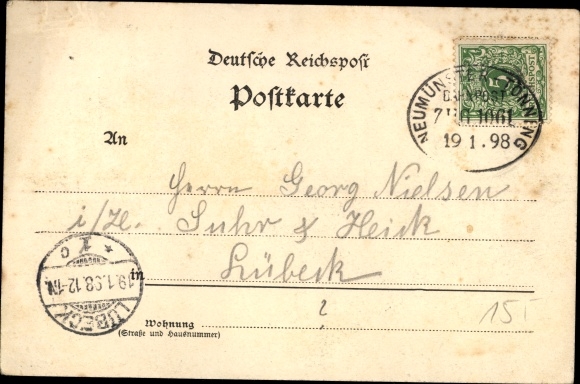 Deutsche Reichspost
Postkarte
NEUMÜNSTER TÖNNING
BAHNPOST
ZUG 1061
19 1.98
5
REICHSPOST
An
Herrn Georg Nielsen
i/H. Suhr & Heick
in Lübeck
LÜBECK
19.1.98.12-1N.
* 1 c
?
Wohnung
(Straße und Hausnummer)
15